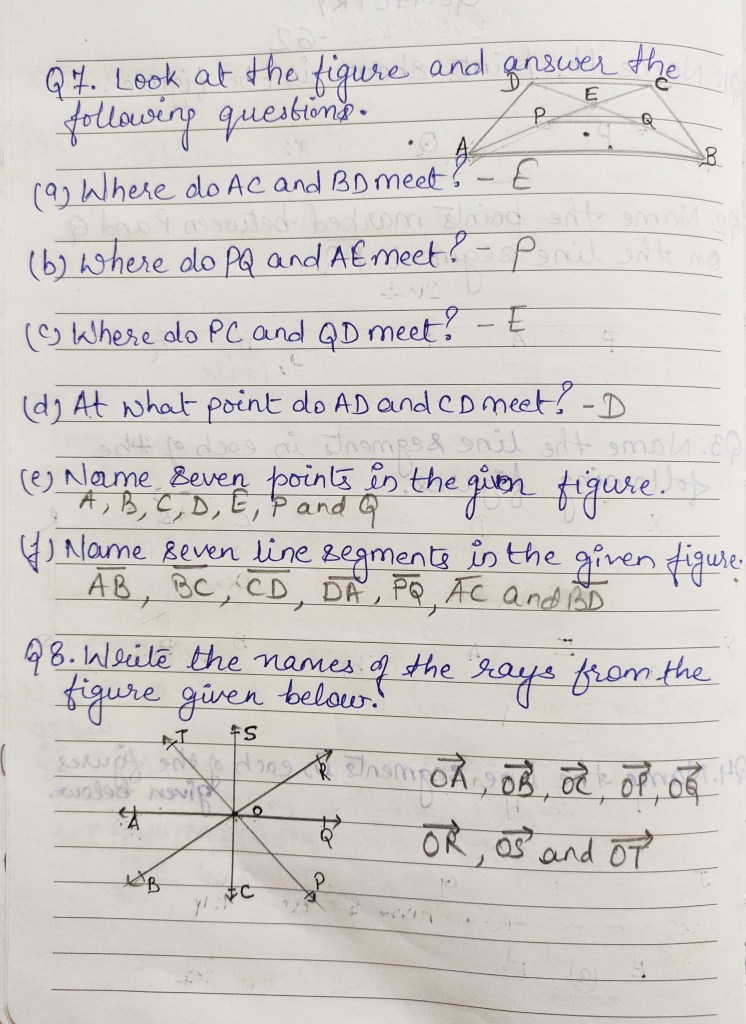 Q7. Look at the figure and answer the
following questions.
D
E
C
P
Q
A
B
(a) Where do AC and BD meet? - E
(b) Where do PQ and AE meet? - P
(c) Where do PC and QD meet? - E
(d) At what point do AD and CD meet? - D
(e) Name seven points in the given figure.
A, B, C, D, E, P and Q
(f) Name seven line segments in the given figure.
A̅B̅, B̅C̅, C̅D̅, D̅A̅, P̅Q̅, A̅C̅ and B̅D̅
Q8. Write the names of the rays from the
figure given below.
T
S
R
A
O
Q
B
C
P
OA→, OB→, OC→, OP→, OQ→
OR→, OS→ and OT→